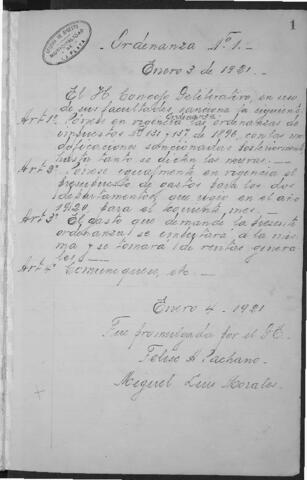 1
Ordenanza Nº 1.
Enero 3 de 1921
El H. Concejo Deliberativo, en uso
de sus facultades, sanciona la siguiente
Ordenanza:
Art 1º Pónese en vigencia las ordenanzas de
impuestos Nº 151 y 157 de 1896, con las mo
dificaciones sancionadas posteriormente
hasta tanto se dicten las nuevas.
Art 2º Pónese igualmente en vigencia el
presupuesto de gastos para los dos
departamentos, que rigió en el año
1920 para el corriente mes.
Art 3º El gasto que demande la presente
ordenanza se imputará a la mis
ma y se tomará de rentas genera
les.
Art 4º Comuníquese, etc.
Enero 4 - 1921
Fue promulgada por el D.E.
Felise A Pachano.
Miguel Luis Morales.